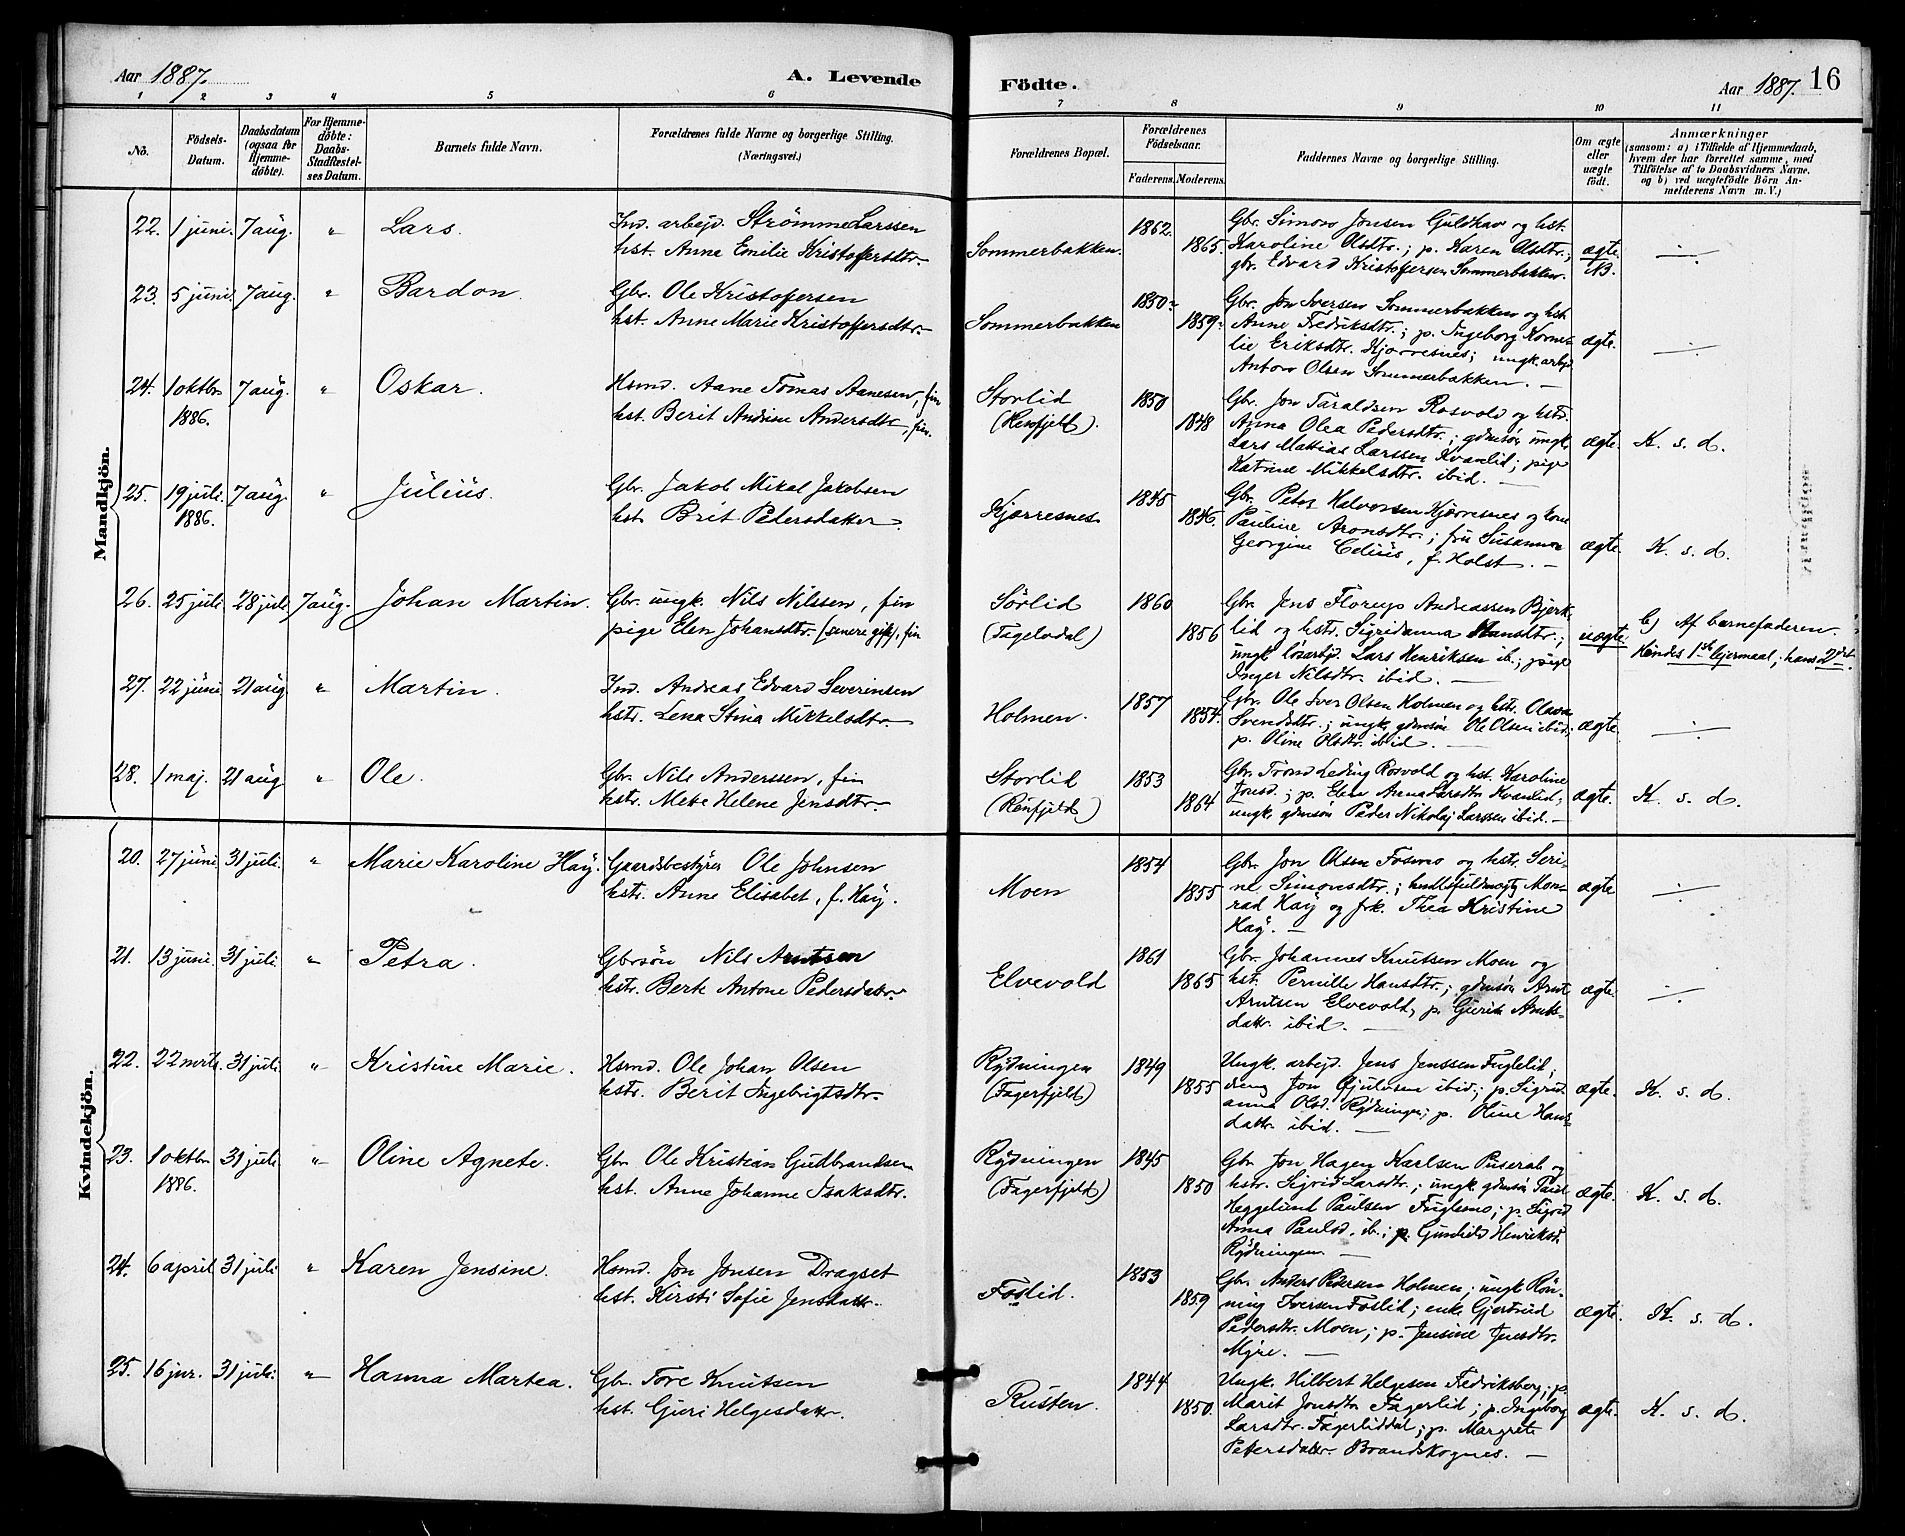 Aar 1887. A. Levende Födte. Aar 1887. 16
1 2 3 4 5 6 7 8 9 10 11
No. Födsels-Datum. Daabsdatum (ogsaa for Hjemme-döbte). For Hjemme-döbte: Daabs-Stadfæstel-ses Datum. Barnets fulde Navn. Forældrenes fulde Navne og borgerlige Stilling. (Næringsvei.) Forældrenes Bopæl. Forældrenes Födselsaar. Faderens. Moderens. Faddernes Navne og borgerlige Stilling. Om ægte eller uægte födt. Anmærkninger (saasom: a) i Tilfælde af Hjemmedaab, hvem der har forrettet samme, med Tilföielse af to Daabsvidners Navne. og b) ved uægtefödte Börn An-melderens Navn m. V.)
Mandkjön.
22. 1 juni. 7 aug. " Lars. Ind. arbejd. Strømme Larssen
hst. Anna Emilie Kristoffersdtr. Sommerbakken. 1862. 1865.
Gbr. Simon Jonsen Guldhav og hst.
Karoline Olsdtr.; p. Karen Olsdtr.;
gbr. Edvard Kristofersen Sommerbakken. ægte.
23. 5 juni. 7 aug. " Bardon. Gbr. Ole Kristofersen
hst. Anne Marie Kristoffersdtr. Sommerbakken 1850. 1859.
Gbr. Jon Iversen Sommerbakken og hst.
Anne Fredriksdtr.; p. Ingeborg Korne-
lie Eriksdtr. Kjærresnes; ungk. arbjd.
Anton Olsen Sommerbakken. — ægte.
24. 1 oktbr. 1886. 7 aug. " Oskar. Hsmd. Aane Tomas Aanesen, fin
hst. Berit Andrine Andersdtr., fin. Storlid (Renfjeld). 1850 1848
Gbr. Jon Taraldsen Rosvold og hstr.
Anna Olea Pedersdtr.; gdmsøn, ungk.
Lars Mattias Larssen Kvanlid; pige
Katrine Mikkelsdtr. ibid. — ægte. K. s. d.
25. 19 juli. 1886. 7 aug. " Julius. Gbr. Jakob Mikal Jakobsen
hst. Brit Pedersdatter. Kjærresnes 1845 1846.
Gbr. Peter Halvorsen Kjærresnes og kone
Pauline Aronsdtr.; fru Susanna
Georgine Celius, f. Holst. — ægte. K. s. d.
26. 25 juli. 28 juli. 7 aug. Johan Martin. Gbr. ungk. Nils Nilssen, fin
pige Elen Johansdtr. (senere gift), fin Sörlid 1860 1856
Gbr. Jens Florup Andreassen Bjerk-
lid og hstr. Sigridanna Hansdtr.;
ungk. løsarbjd. Lars Henriksen ib.; pige
Inger Nilsdtr. ibid. — uægte. b) Af barnefaderen.
Hendes 1ste lejermaal; hans 2det.
27. 22 juni 21 aug. " Martin. Ind. Andreas Edvard Severinsen
hstr. Lena Stina Mikkelsdtr. Holmen. 1857 1854.
Gbr. Ole Iver Olsen Holmen og hst. Olava
Svendsdtr.; ungk. gdmsøn Ole Olsen ibid.;
p. Oline Olsdtr. ibid. — ægte.
28. 1 maj. 21 aug. " Ole. Gbr. Nils Anderssen, fin
hstr. Mette Helene Jensdtr. Storlid (Renfjeld) 1853 1864
Gbr. Trond Leding Rosvold og hst. Karoline
Jonsd.; p. Elen Anna Larsdtr. Kvanlid;
ungk. gdmsøn Peder Nikolaj Larssen ibid. — ægte. K. s. d.
Kvindekjön.
20. 27 juni. 31 juli. " Marie Karoline Haÿ. Gaardsbestyrer Ole Johnsen
hstr. Anne Elisabet, f. Haÿ. Moen 1854 1855
Gbr. Jon Olsen Fosmo og hstr. Seri-
ne Simonsdtr.; handlsfuldmægtg Mon-
rad Haÿ og frk. Thea Kristine
Haÿ. — ægte
21. 13 juni. 31 juli. " Petra. Gbrsøn Nils Arntsen
hstr. Berte Antone Pedersdattr. Elvevold 1861 1865
Gbr. Johannes Knutsen Moen og
hst. Pernille Hansdtr.; gdmsøn Arnt
Arntsen Elvevold; p. Gurin Arnts-
dattr. ibid. — ægte.
22. 22 marts. 31 juli. " Kristine Marie. Hsmd. Ole Johan Olsen
hstr. Berit Ingebrigtsdtr. Rydningen (Fagerfjeld) 1849 1855
Ungk. arbejd. Jens Jenssen Fuglelid;
dreng Jon ibid; p. Sigrid-
anna Olsd. Rydningen; p. Oline Hans-
dattr. ibid. — ægte. K. s. d.
23. 1 oktbr. 1886. 31 juli " Oline Agnete. Gbr. Ole Kristian Gudbrandsen
hst. Anne Johanne Isaksdtr. Rydningen (Fagerfjeld) 1845 1850
Gbr. Jon Hagen Karlsen Puserab og
hstr. Sigrid Larsdtr.; ungk. gdmsøn Paul
Heggelund Paulsen Fuglemo; p. Sigrid
Anna Paulsd. ib.; p. Gunhild Henriksd.
Rydningen. — ægte. K. s. d.
24. 6 april 31 juli " Karen Jensine. Hsmd. Jon Jonsen Dragset
hst. Kirsti Sofie Jensdattr. Foslid. 1853 1859
Gbr. Anders Pedersen Holmen; ungk. Røn-
ning Iversen Foslid; enke Gjertrud
Pedersdtr. Moen; p. Jensine Jensdtr.
Myre. — ægte. K. s. d.
25. 16 jnr. 31 juli. " Hanna Martea. Gbr. Tore Knutsen
hst. Guri Helgesdattr. Rusten. 1844 1850.
Ungk. Hilbert Helgesen Fredriksberg; p.
Marit Jonsdtr. Fagerlid; p. Ingeborg
Larsdtr. Fagerliddal; p. Margrete
Petersdattr. Brandskognes. — ægte. K. s. d.